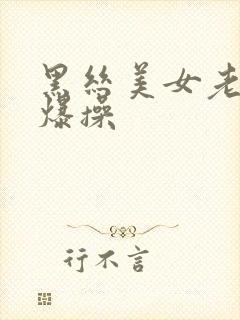 黑丝美女老
爆操
行不言